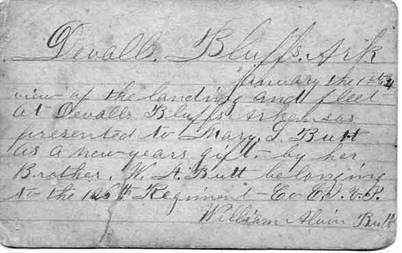 Devalls Bluffs Ark
January the 1st 64
view of the landing and fleet
at Devalls Bluffs Arkansas
presented to Mary L Butt
as a new years gift. by her
Brother. W. A. Butt belonging
to the 126th Regiment - Co
William Alvin Butt